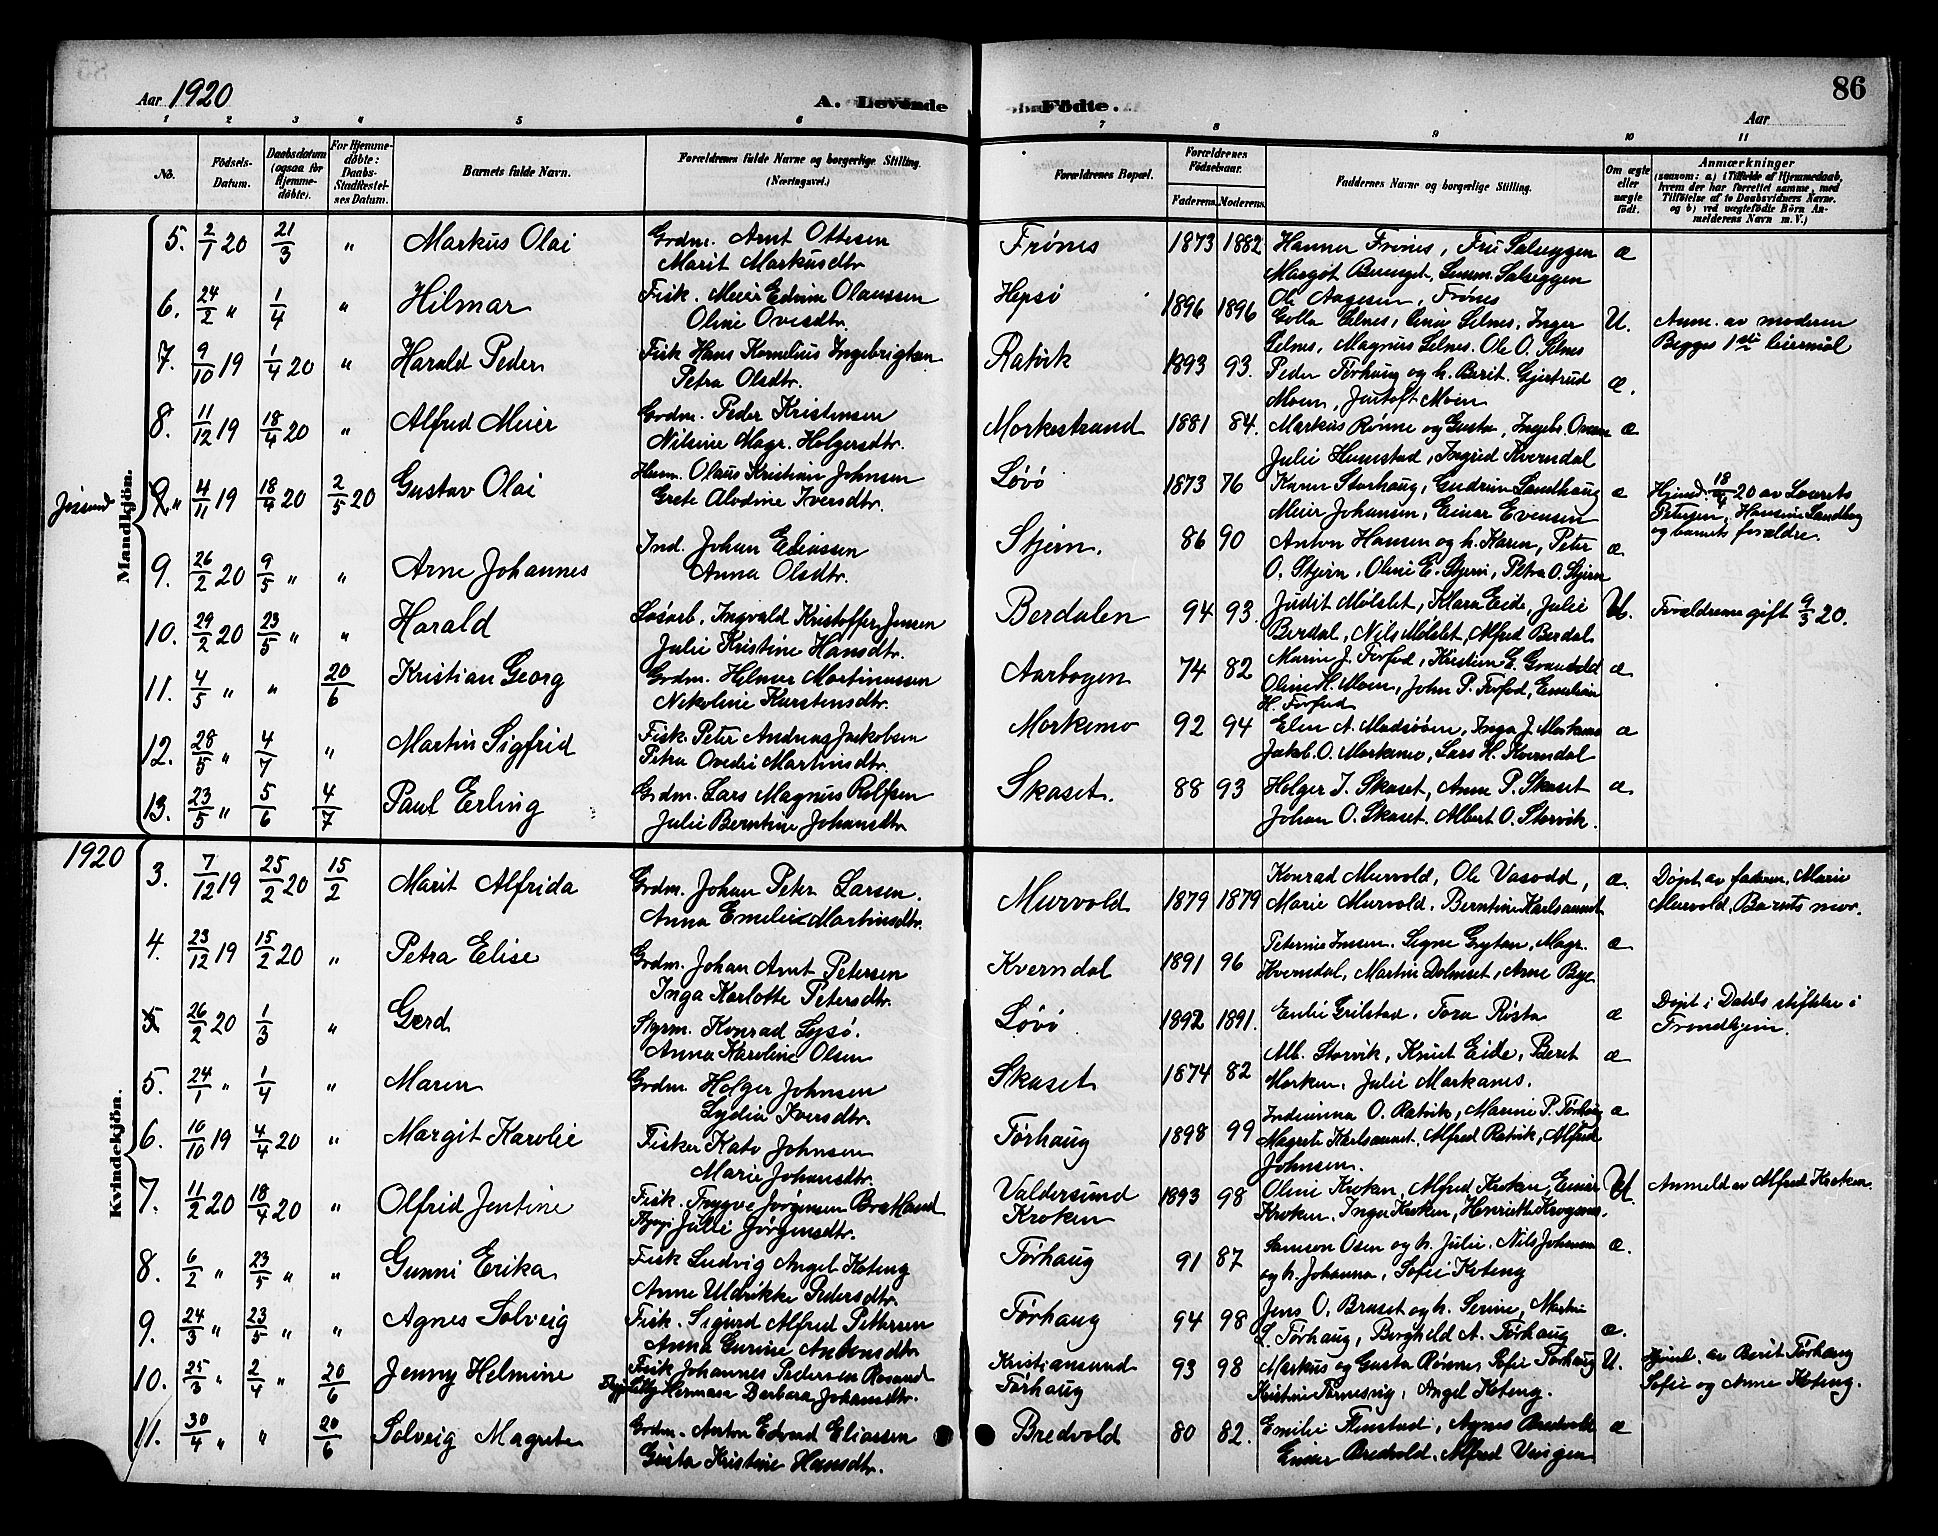 Aar 1920
A. Levende Fødte.
86
Aar
1 2 3 4 5 6 7 8 9 10 11
No.
Fødsels-Datum.
Daabsdatum (ogsaa for Hjemmedøbte).
For Hjemmedøbte: Daabs-Stadfæstelses Datum.
Barnets fulde Navn.
Forældrenes fulde Navne og borgerlige Stilling. (Næringsvei.)
Forældrenes Bopæl.
Forældrenes Fødselsaar.
Faderens. Moderens.
Faddernes Navne og borgerlige Stilling.
Om ægte eller uægte født.
Anmærkninger
(saasom: a) i Tilfælde af Hjemmedaab, hvem der har forrettet samme, med Tilføielse af to Daabsvidners Navne. og b) ved uægtefødte Børn Anmelderens Navn m. V.)
Mandkjön.
5. 2/1 20 21/3 " Markus Olai Grdm. Arnt Ottesen Frønes 1873 1882 Hanna Frønes, Fru Salseggen æ
Marit Markusdtr. Margot
6. 24/2 " 1/4 " Hilmar Fisk. Meier Edvin Olaussen Hepsø 1896 1896 Ole Aagesen, Frønes U. Anm. av moderen
Oline Ovesdtr. Golla Selnes, Inger Begges 1ste leiermål
7. 9/10 19 1/4 20 " Harald Peder Fisk Hans Kornelius Ingebrigtsen Ratvik 1893 93. Selnes, Magnus Selnes. Ole O. Selnes æ.
Petra Olsdtr. Peder Tørhaug og h. Berit. Gjertrud
Moen, Justoft Moen
8. 11/12 19 18/4 20 " Alfred Meier Grdm. Peder Kristensen Morkestrand 1881 84. Markus Rønne og Gusta, Ingeb. æ
Nilsine Magr. Holgersdtr. Julie Humstad, Ingrid Kverndal
Jøssund " 4/11 19 18/4 20 2/5 20 Gustav Olai Husm. Olaus Kristian Johnsen Løvø 1873 76 Karen Storhaug, Gudrun Sandhaug æ Hjemd. 18/4 20 av Lourits
Grete Alvdine Iversdtr. Meier Johansen, Einar Evensen Petersen, Hansine Sandberg
og barnets forældre.
9. 26/2 20 9/5 " " Arne Johannes Ind. Johan Eliassen Stjern. 86 90 Anton Hansen og h. Karen, Peter æ
Anna Olsdtr. O. Stjern, Oline E. Stjern, Petra O. Stjern
10. 29/2 20 23/5 " " Harald Løsarb. Ingvald Kristoffer Jensen Berdalen 94 93. Judit Mølslet, Klara Eide, Julie U. Forældrene gift 9/3 20.
Julie Kristine Hansdtr. Berdal, Nils Mølslet, Alfred Berdal
11. 4/5 " " 20/6 Kristian Georg Grdm. Hilmar Martinussen Aarbogen 74 82 Marie J. Forfod, Kristian E. æ
Nikoline Karstensdtr. Oline H. Moen, John P. Forfod, Emelian
H. Forfod
12. 28/5 " 4/7 " Martin Sigfrid Fisk. Peter Andreas Jakobsen Morkemo 92 94 Elen A. Madsøøen, Inga J. Morkemo æ
Petra Ovedie Martinsdtr. Jakob. O. Morkemo, Lars H. Kverndal
13. 23/5 " 5/6 4/7 Paul Erling Grdm. Lars Magnus Rolfsen Skaset. 88 93 Holger J. Skaset, Anne P. Skaset æ
Julie Berntine Johansdtr. Johan O. Skaset. Albert O. Storvik.
1920
Kvindekjön.
3. 7/12 19 25/2 20 15/2 Marit Alfrida Grdm. Johan Peter Larsen. Murvold 1879 1879 Konrad Murvold, Ole Vasodd, æ. Døpt av faderen. Marie
Anna Emelie Martinsdtr. Marie Murvold. Berntine Karlsaunet Murvold, Barnets mor.
4. 23/12 19 15/2 20 " Petra Elise Grdm. Johan Arnt Petersen Kverndal 1891 96 Peternie Jensen. Signe Grytan, Magr. æ
Inga Karlotte Petersdtr. Kverndal, Martin Dolmset, Arne Bye
5 26/2 20 1/3 " Gerd Styrm. Konrad Lysø. Løvø 1892 1891. Emlie Grilstad, Tora Rista æ Døpt i Dahls stiftelse i
Anna Karoline Olsen Trondhjem.
5. 24/1 " 1/4 " Maren Grdm. Holger Johnsen Skaset 1874 82 Alb. Storvik, Knut Eide, Beret æ
Lydia Iversdtr. Morken. Julie Markanes.
6. 10/10 19 4/4 20 " Margit Karolie Fisker Kato Johnsen Tørhaug 1898 99 Indianna O. Ratvik, Marine P. Tørhaug æ
Marie Johansdtr. Magrete Karlsaunet. Alfred Ratvik, Alfred
Johnsen.
7. 11/2 20 18/4 20 " Olfrid Jentine Fisk. Trygve Jørgensen Brekland Valdersund 1893 98 Oline Kroken, Alfred Kroken, Einar U. Anmeld av Alfred Kroken.
Julie Jørgensdtr. Kroken Kroken, Inga Kroken, Henriette
8. 6/2 " 23/5 " " Gunni Erika Fisk Ludvig Angel Koteng Tørhaug 91 87 Samson Osen og h. Julie. Nils Johansen æ.
Anne Uldrikke Pedersdtr. og h. Johanna, Sofie Koteng
9. 24/3 " 23/5 " " Agnes Solveig Fisk. Sigurd Alfred Pettersen Tørhaug 94 98 Jens O. Braset og h. Serine, Martin
Anna Gurine Antonsdtr. L. Tørhaug, Berghild A. Tørhaug æ.
10. 25/3 " 2/4 " 20/6 Jenny Helmine Fisk Johannes Pedersen Rosand Kristiansund 93 98 Markus og Gusta Rønne, Sofie Tørhaug U. Hjemd. av Berit Tørhaug
Hermana Barbara Johansdtr. Tørhaug Kristine Tarnesvig, Angel Koteng. Sofie og Anne Koteng.
11. 30/4 " " 20/6 Solveig Magrete Grdm. Anton Edvard Eliassen Bredvold 80 82. Emilie Flenstad, Agnes Bredvold æ
Gusta Kristine Hansdtr. Einar Bredvold. Alfred Vingen